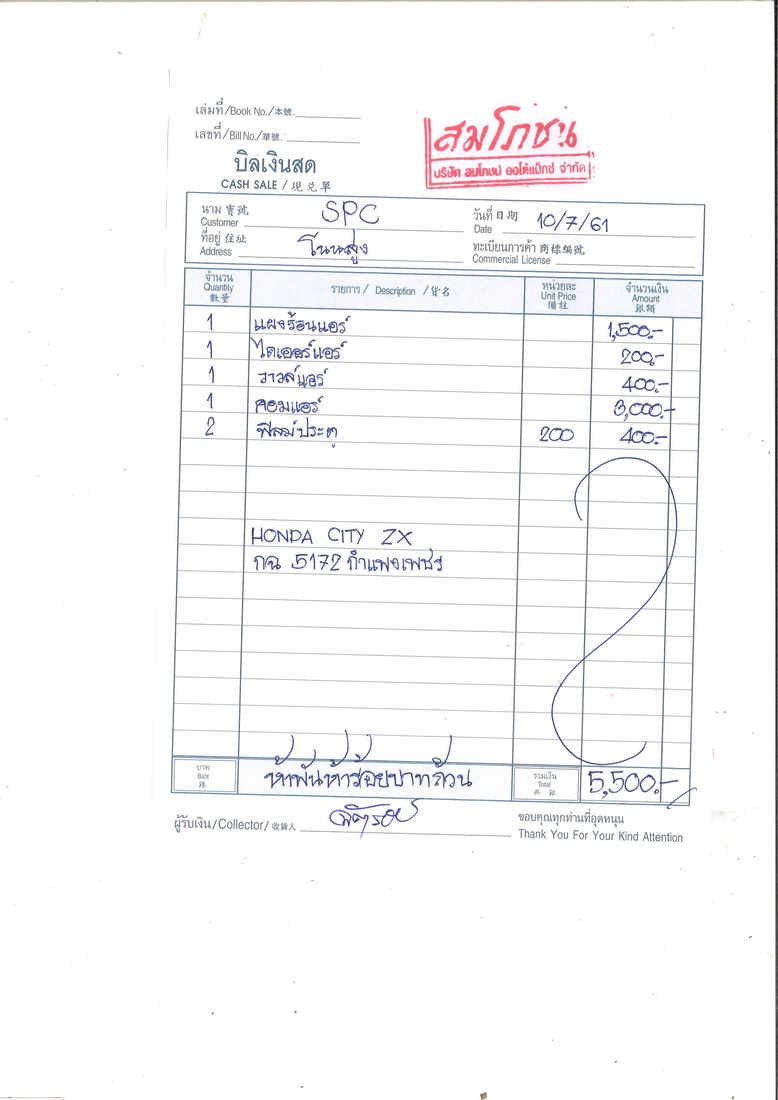 เล่มที่/Book No./本號.
เลขที่/Bill No./單號.
สมโภชน์
บริษัท สมโภชน์ ออโต้แม็กซ์ จำกัด
บิลเงินสด
CASH SALE / 現兑單
นาม 寶號 Customer SPC
วันที่ 日期 Date 10/7/61
ที่อยู่ 住址 Address โนนสูง
ทะเบียนการค้า 商標編號 Commercial License
จำนวน Quantity 數量 รายการ / Description / 貨名 หน่วยละ Unit Price 備註 จำนวนเงิน Amount 銀額
1 แผงร้อนแอร์ 1,500.-
1 ไดเออร์แอร์ 200.-
1 วาวล์แอร์ 400.-
1 คอมแอร์ 3,000.-
2 ฟิล์มประตู 200 400.-
HONDA CITY ZX
กฉ 5172 กำแพงเพชร
บาท Baht 銖 ห้าพันห้าร้อยบาทถ้วน รวมเงิน Total 共銀 5,500.-
ผู้รับเงิน/Collector/收貨人
ขอบคุณทุกท่านที่อุดหนุน
Thank You For Your Kind Attention